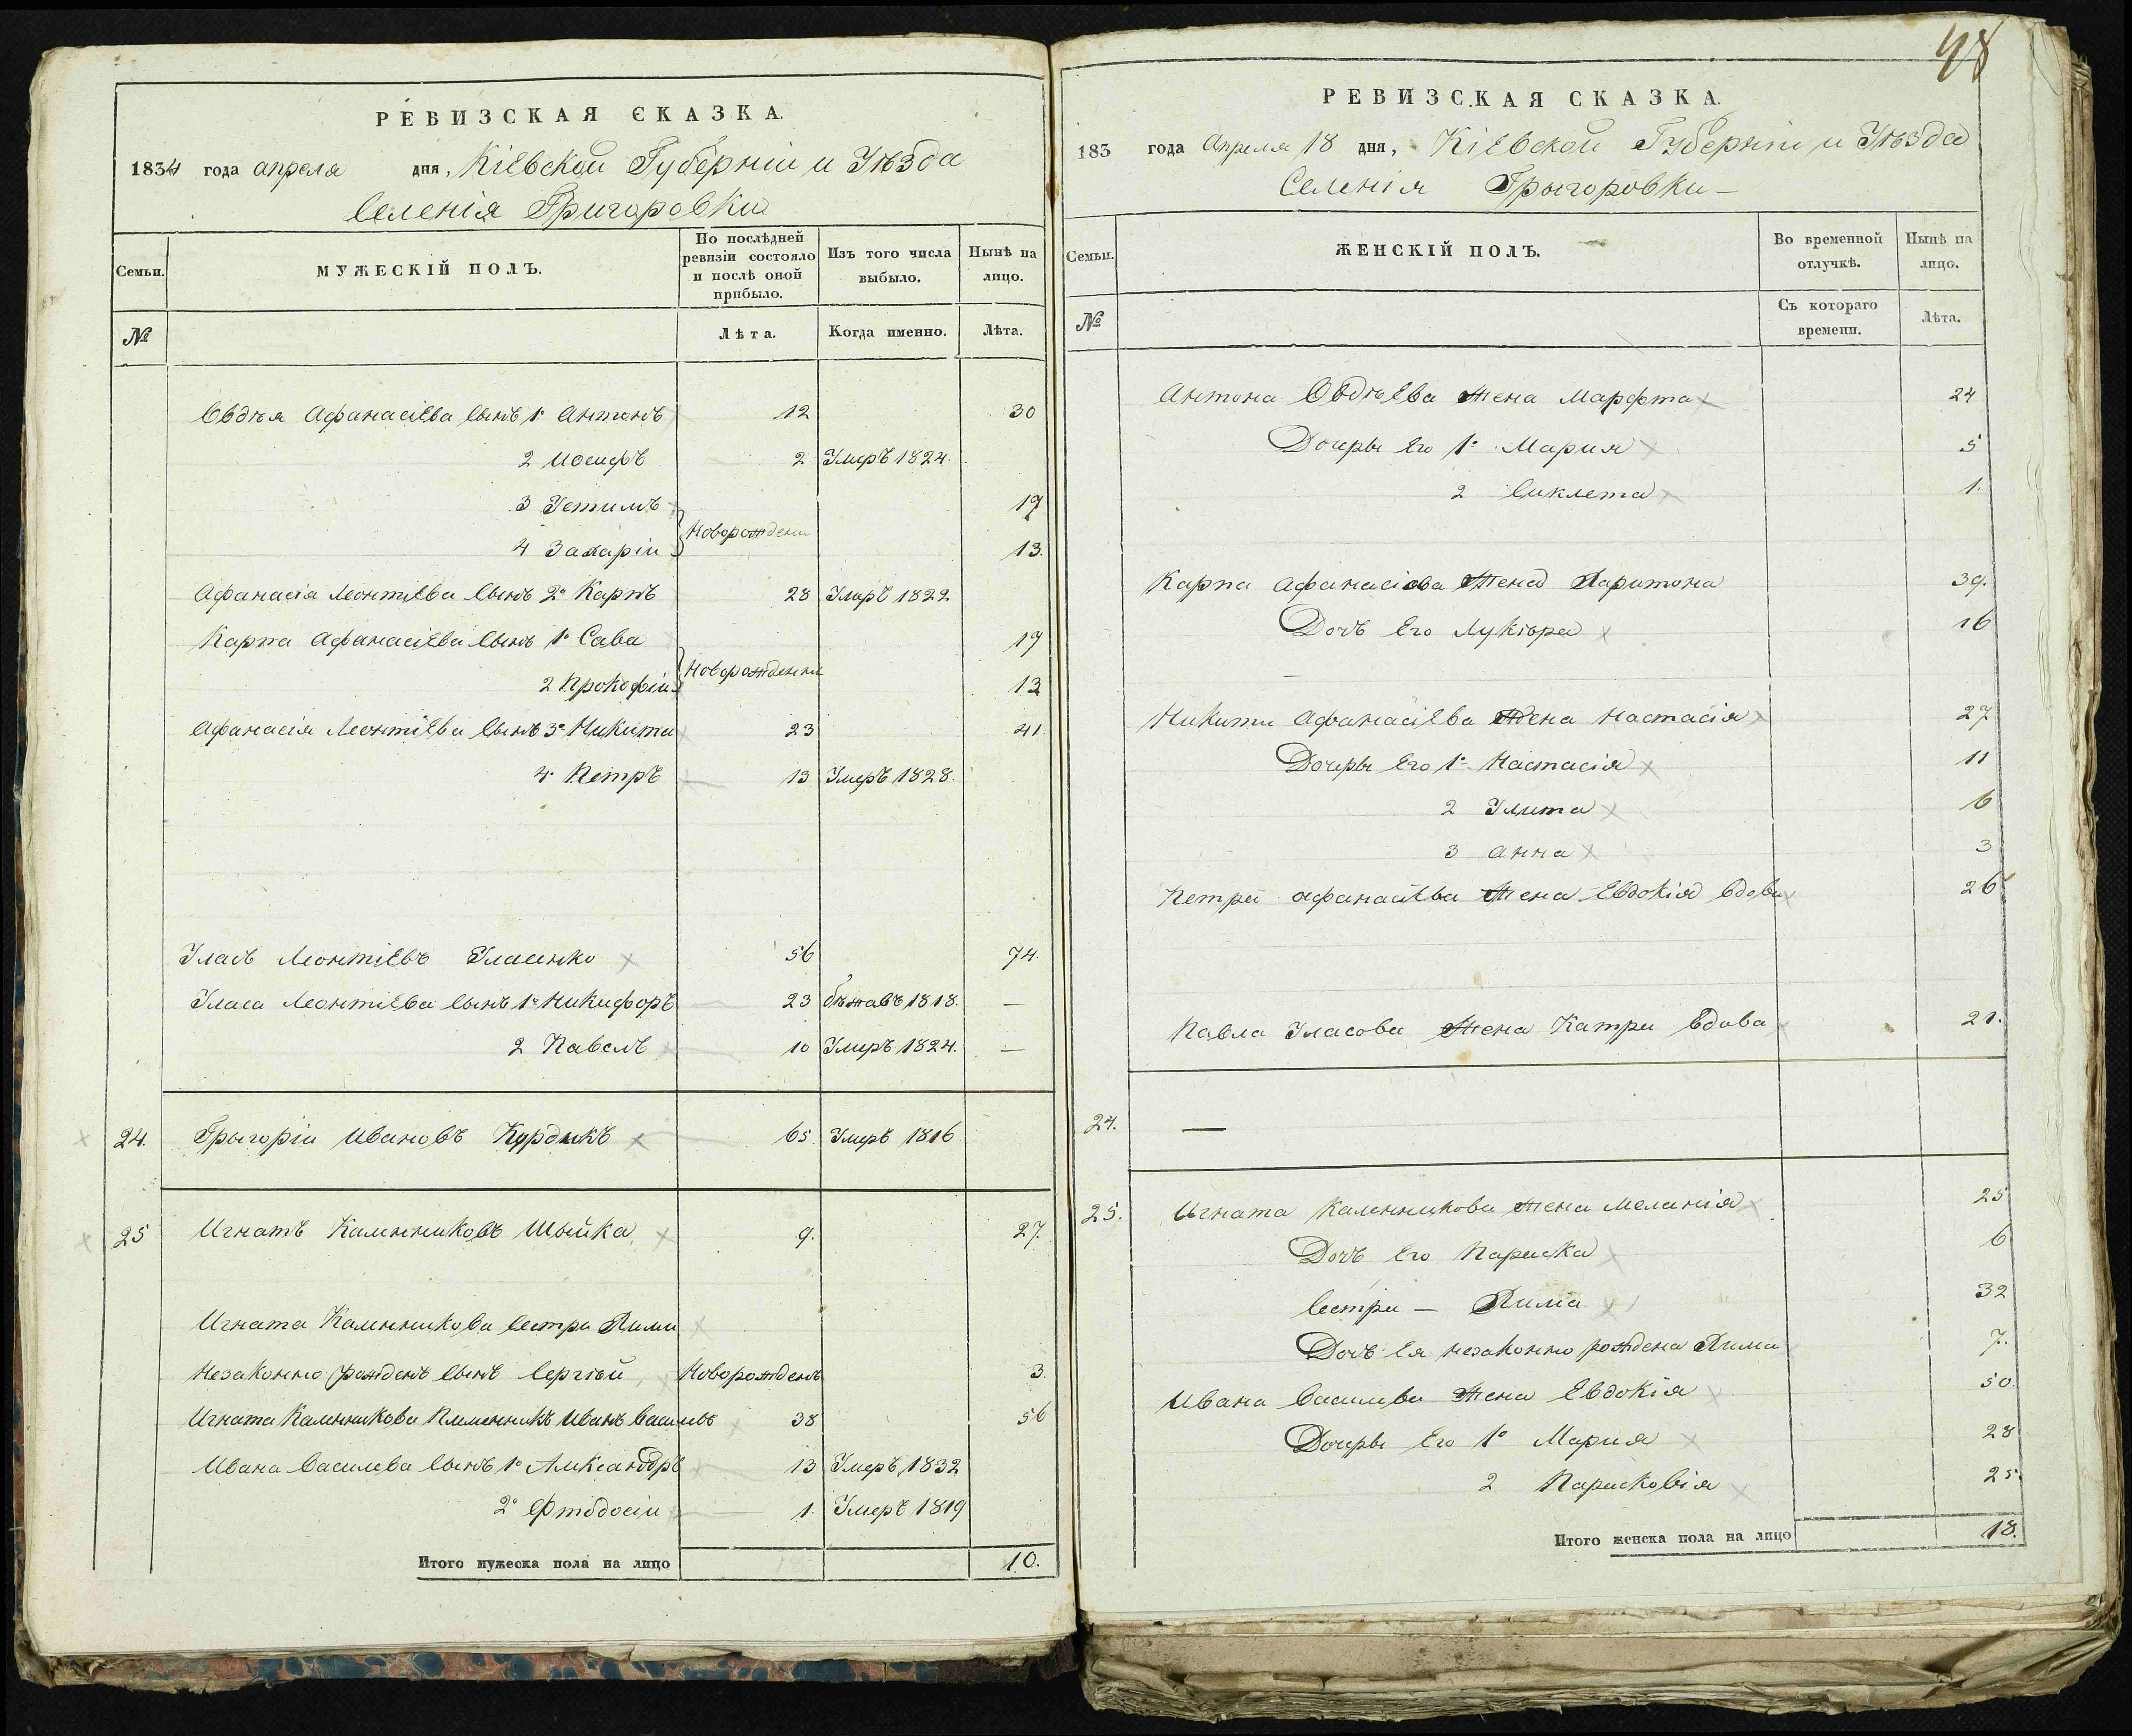 РЕВИЗСКАЯ СКАЗКА.
1834 года апреля дня, Кіевской Губерніи и Уѣзда
Селенія Григоровки
Семьи. МУЖЕСКІЙ ПОЛЪ. По послѣдней ревизіи состояло и послѣ оной прибыло. Изъ того числа выбыло. Нынѣ на лицо.
№ Лѣта. Когда именно. Лѣта.
Овдѣя Афанасіева сынъ 1º Антонъ 12 30
2 Иосифъ 2 Умеръ 1824.
3 Устимъ 17
Новорождени
4 Захаріи 13.
Афанасія Леонтіева сынъ 2º Карпъ 28 Умеръ 1822
Карпа Афанасіева сынъ 1º Сава 17
Новорожденни
2 Прокофіи 13
Афанасія Леонтіева сынъ 3º Никита 23 41
4. Петръ 13 Умеръ 1828.
Уласъ Леонтіевъ Уласенко 56 74.
Уласа Леонтіева сынъ 1º Никифоръ 23 бѣжавъ 1818. —
2 Павелъ 10 Умеръ 1824. —
24. Грыгоріи Ивановъ Курдикъ 65 Умеръ 1816
25 Игнатъ Калинниковъ Шыйка 9. 27.
Игната Калинникова сестры Химы
Незаконно рожденъ сынъ Сергѣй Новорожденъ 3.
Игната Калинникова племенникъ Иванъ Василіевъ 38 56
Ивана Василева сынъ 1º Александръ 13 Умеръ 1832
2º Фтодосіи 1. Умеръ 1819
Итого мужеска пола на лицо 10.
48
РЕВИЗСКАЯ СКАЗКА.
183 года Апреля 18 дня, Кіевской Губерніи и Уѣзда
Селенія Грыгоровки —
Семьи. ЖЕНСКІЙ ПОЛЪ. Во временной отлучкѣ. Нынѣ на лицо.
№ Съ котораго времени. Лѣта.
Антона Овдѣева жена Марфта 24
Дочеры его 1º Мария 5
2 Сиклета 1.
Карпа Афанасіова жена Харитона 39.
Дочъ его Лукіра 16
Никиты Афанасіева жена Настасія 27
Дочеры его 1º Настасія 11
2 Улита 6
3 Анна 3
Петра Афанасіева жена Евдокія вдова 26
Павла Уласова жена Катря вдова 21.
24. —
25. Игната Калинникова жена Меланія 25
Дочъ его Параска 6
Сестра — Хима 32
Дочъ ея незаконно рождена Хима 7.
Ивана Василева жена Евдокія 50.
Дочеры его 1º Мария 28
2 Парасковія 25.
Итого женска пола на лицо 18.